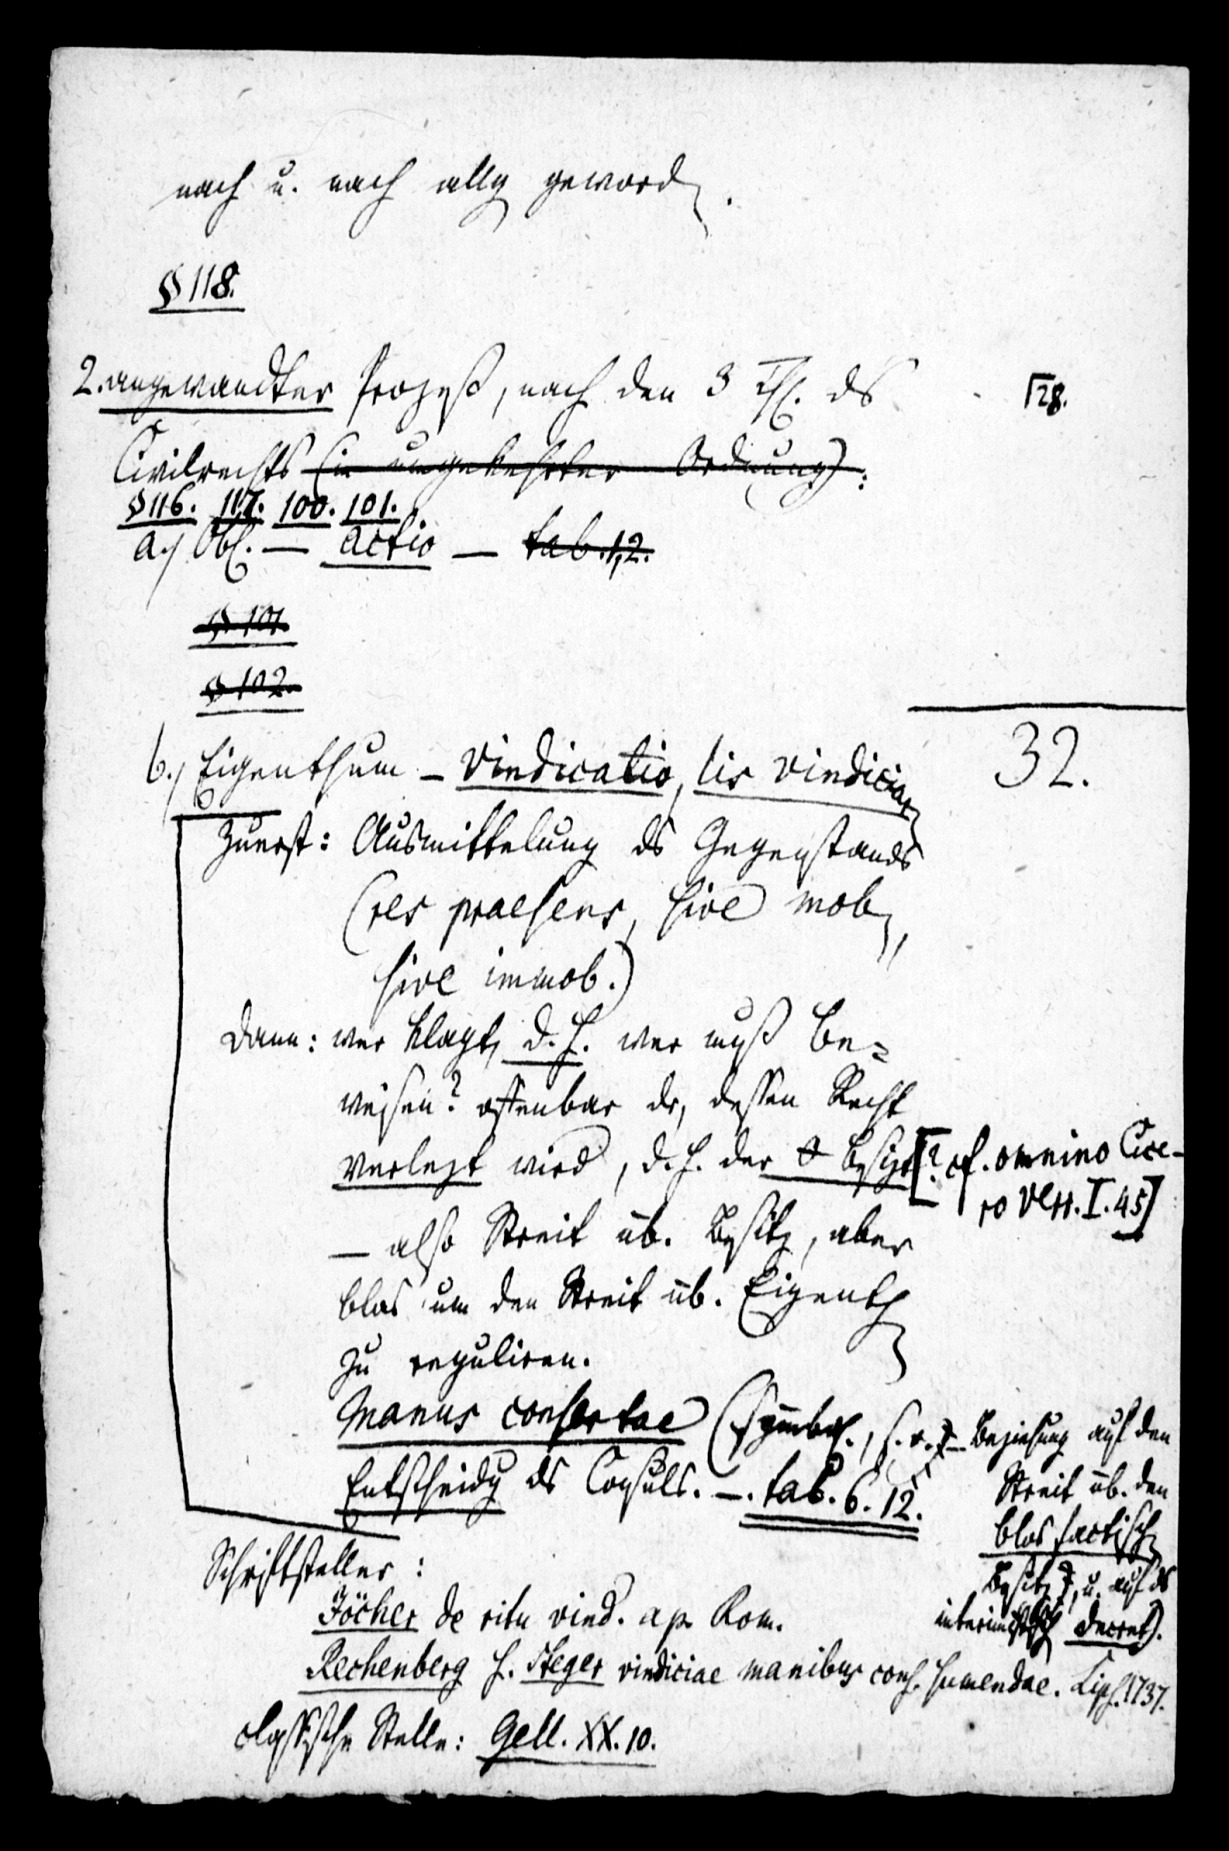 nach u. nach allg geword.
§ 118.
2. angewandter Prozeß, nach den 3 Th. ds
Γ28.
Civilrechts (in umgekehrter Ordnung):
§ 116. 117. 100. 101.
a.) Obl. — actio — tab. 1,2.
§ 101
§ 102.
32.
b.) Eigenthum — Vindicatio, lis vindiciar
Zuerst: Ausmittelung ds Gegenstands
(res praesens, sive mob,
sive immob.)
Dann: wer klagt, d. h. wer muß be=
weisen? offenbar dr, dessen Recht
verletzt wird, d. h. der Besitzer
[? cf. omnino Cice-
ro Verr. I. 45]
— also Streit üb. Besitz, aber
blos um den Streit üb. Eigenth
zu reguliren.
Manus consertae (symbol., — Beziehung auf den
Streit üb. den
blos factisch
Besitz, u. auf ds
interimistisch Decret).
Entscheidg ds Consuls. —. tab. 6. 12.
Schriftsteller:
Jöcher de ritu vind. ap. Rom.
Rechenberg s. Steger vindiciae manibus cons. sumendae. Lips. 1737.
classische Stelle: Gell. XX. 10.